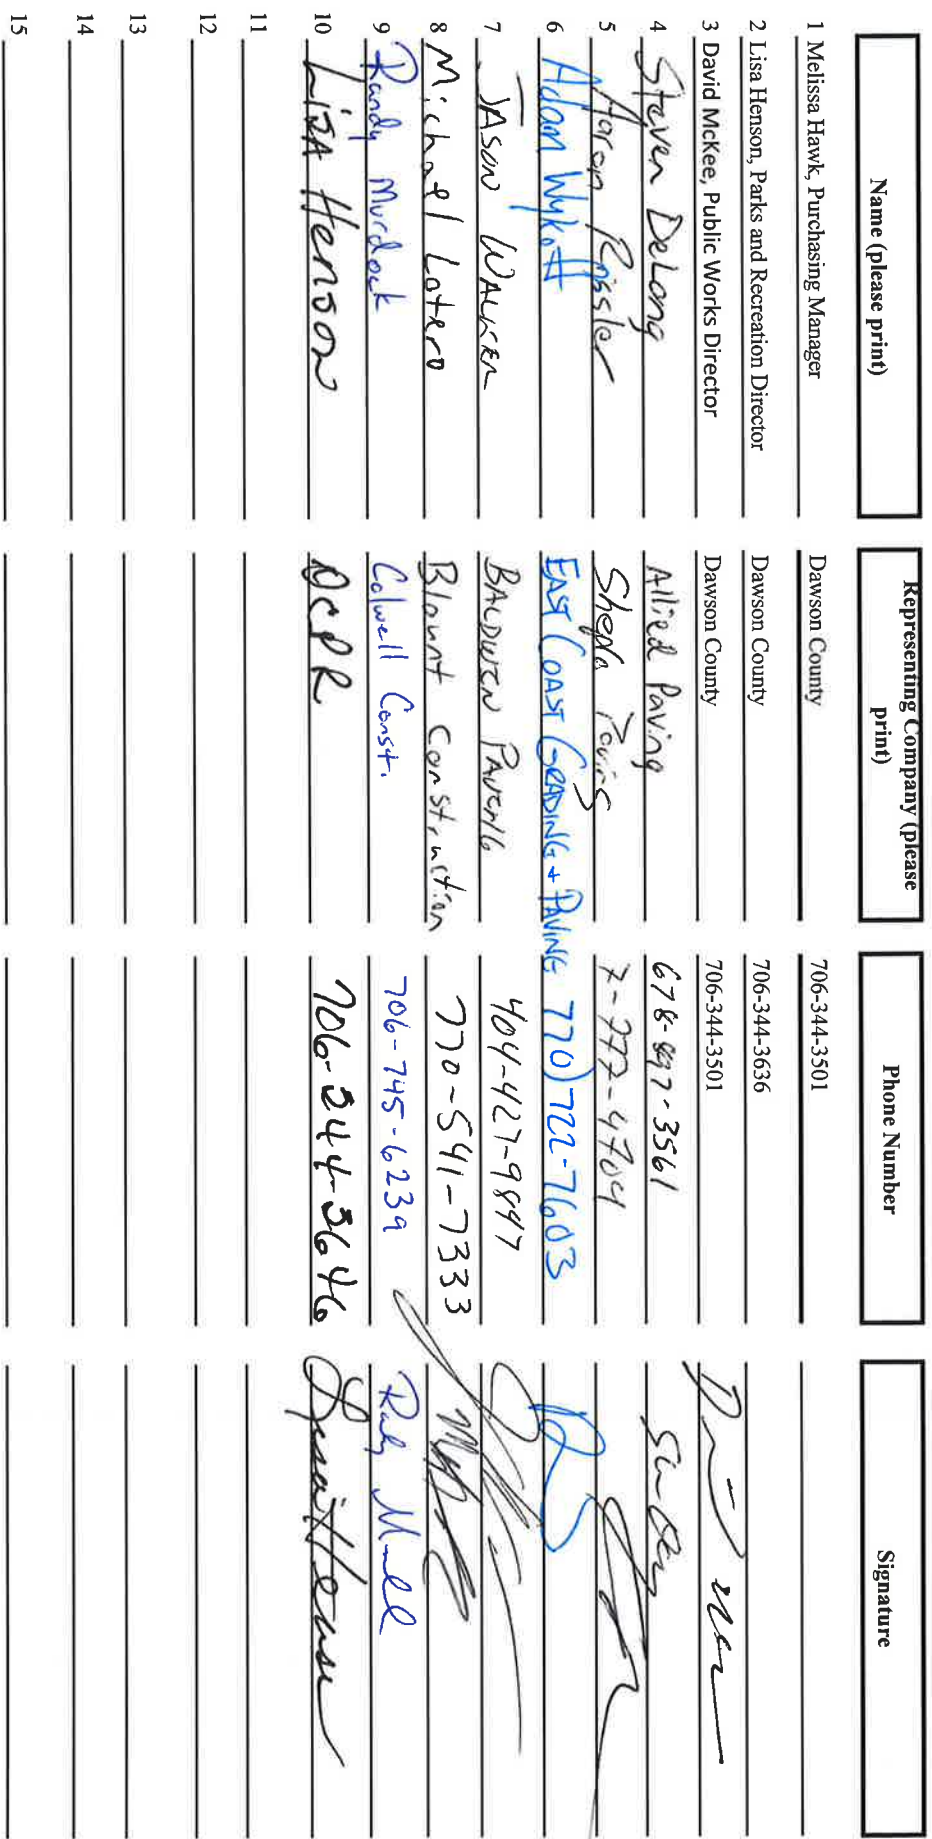 Name (please print) Representing Company (please print) Phone Number Signature
1 Melissa Hawk, Purchasing Manager Dawson County 706-344-3501
2 Lisa Henson, Parks and Recreation Director Dawson County 706-344-3636
3 David McKee, Public Works Director Dawson County 706-344-3501
4 Steven DeLong Allied Paving 678-897-3561
5 Aaron Shepla Paving 7-777-4704
6 Adam Wykoff EAST COAST GRADING + PAVING 770)722-7603
7 JASON WALKER BALDWIN PAVING 404-427-9847
8 Michael Lotero Blount Construction 770-541-7333
9 Randy Murdock Colwell Const. 706-745-6239
10 LISA Henson DCPR 706-344-3646 Lisa Henson
11
12
13
14
15